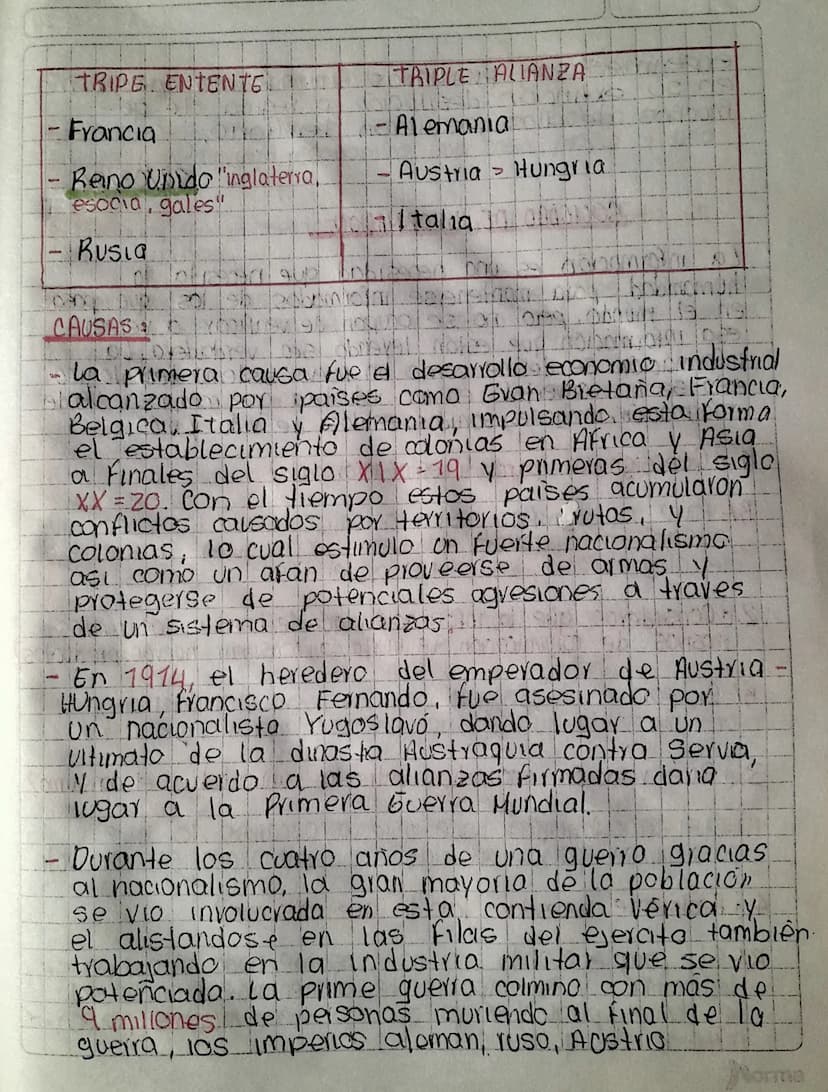 TRIPE ENTENTE
- Francia
- Reino Unido "inglaterra,
esocia, gales"
- Rusia
TRIPLE ALIANZA
- Alemania
- Austria - Hungria
- Italia
CAUSAS:
- La primera causa fue el desarrollo economio industrial
alcanzado por paises como Gran Bretaña, Francia,
Belgica, Italia y Alemania, impulsando esta forma
el establecimiento de colonias en Africa y Asia
a finales del siglo XIX = 19 y primeras del siglo
XX = 20. Con el tiempo estos paises acumularon
conflictos causados por territorios, rutas, y
colonias, lo cual estimulo un fuerte nacionalismo
asi como un afan de proveerse de armas y
protegerse de potenciales agresiones a traves
de un sistema de alianzas.
- En 1914, el heredero del emperador de Austria -
Hungria, Francisco Fernando, fue asesinado por
un nacionalista Yugoslavo, dando lugar a un
ultimato de la dinastia Austraquia contra Servia,
y de acuerdo a las alianzas firmadas daria
lugar a la Primera Guerra Mundial.
- Durante los cuatro años de una guerra gracias
al nacionalismo, la gran mayoria de la población
se vio involucrada en esta contienda verica y
el alistandose en las filas del ejercito también
trabajando en la industria militar que se vio
potenciada. La prime guerra colmino con más de
9 millones de personas muriendo al final de la
guerra, los imperios aleman, ruso, Austrio
Norma